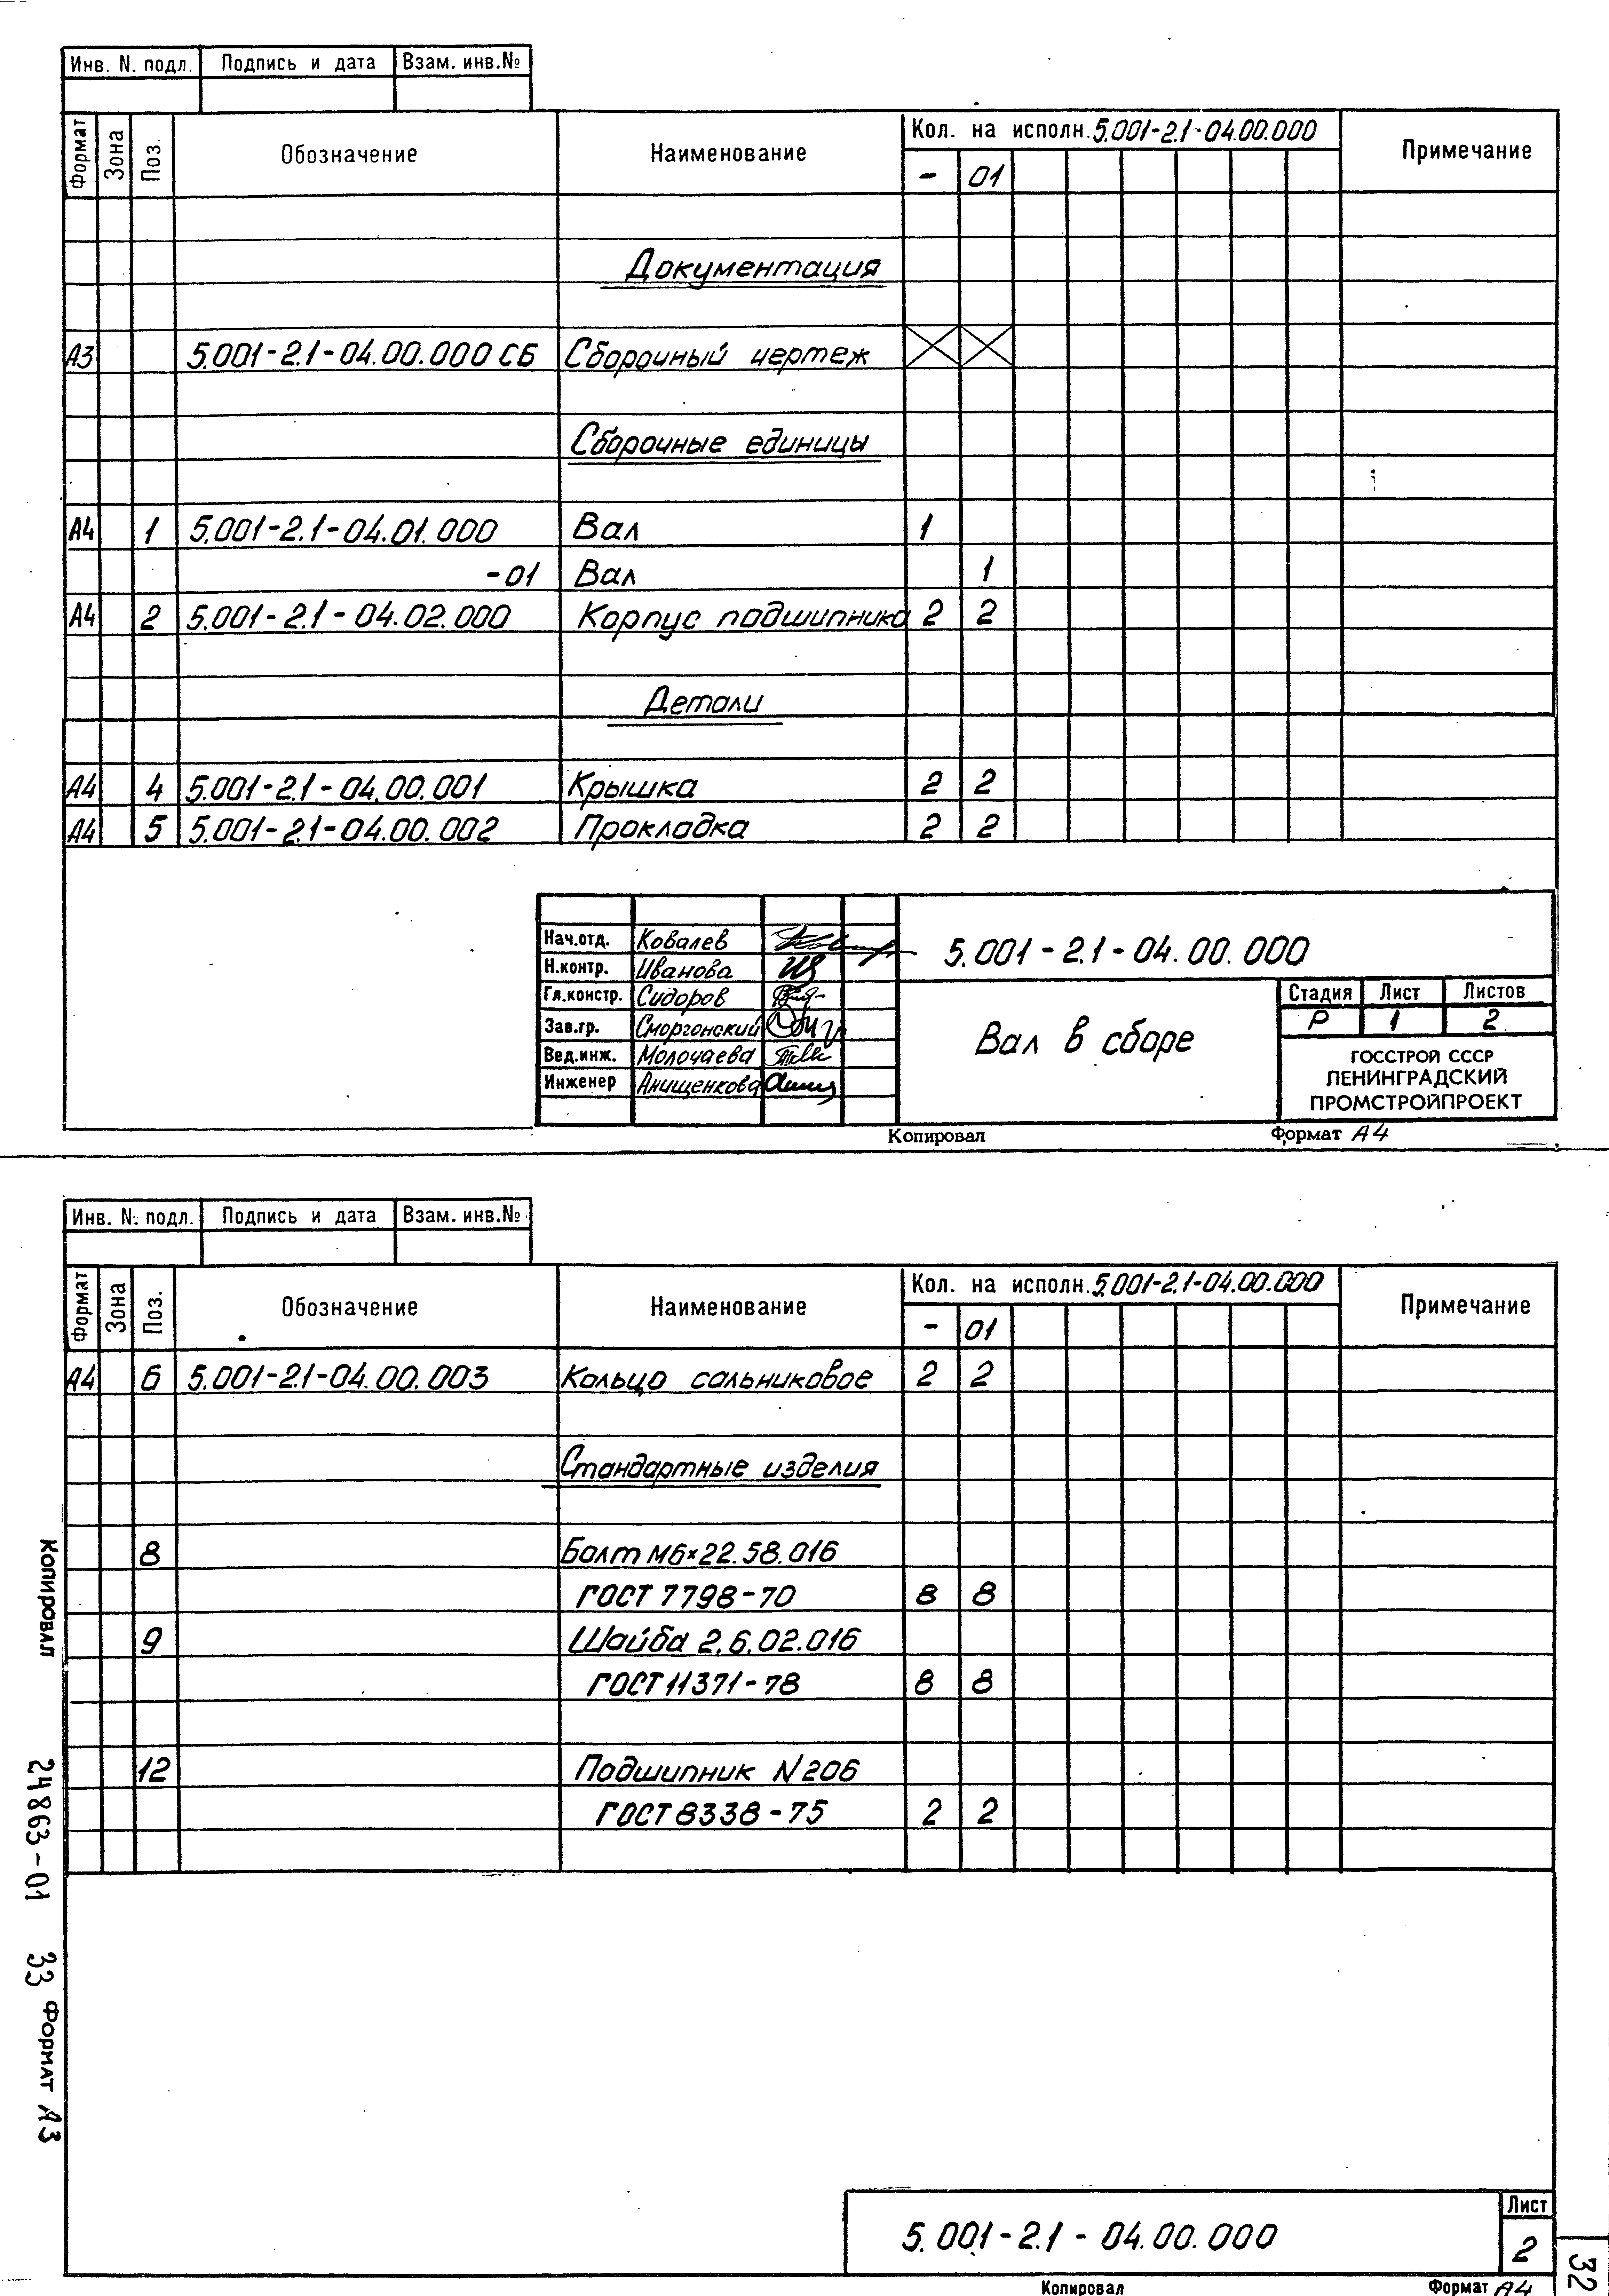 Инв. N. подл. Подпись и дата Взам. инв.№
Формат Зона Поз. Обозначение Наименование Кол. на исполн. 5.001-2.1-04.00.000 Примечание
- 01
Документация
А3 5.001-2.1-04.00.000 СБ Сборочный чертеж
Сборочные единицы
А4 1 5.001-2.1-04.01.000 Вал 1
-01 Вал 1
А4 2 5.001-2.1-04.02.000 Корпус подшипника 2 2
Детали
А4 4 5.001-2.1-04.00.001 Крышка 2 2
А4 5 5.001-2.1-04.00.002 Прокладка 2 2
Нач.отд. Ковалев
Н.контр. Иванова
Гл.констр. Сидоров
Зав.гр. Сморгонский
Вед.инж. Молочаева
Инженер Анищенкова
5.001-2.1-04.00.000
Вал в сборе
Стадия Лист Листов
Р 1 2
ГОССТРОЙ СССР
ЛЕНИНГРАДСКИЙ
ПРОМСТРОЙПРОЕКТ
Копировал Формат А4
Инв. N. подл. Подпись и дата Взам. инв.№
Формат Зона Поз. Обозначение Наименование Кол. на исполн. 5.001-2.1-04.00.000 Примечание
- 01
А4 6 5.001-2.1-04.00.003 Кольцо сальниковое 2 2
Стандартные изделия
8 Болт М6×22.58.016
ГОСТ 7798-70 8 8
9 Шайба 2.6.02.016
ГОСТ 11371-78 8 8
12 Подшипник N206
ГОСТ 8338-75 2 2
5.001-2.1-04.00.000
Лист
2
Копировал Формат А4
Копировал 24863-01 33 Формат А3
32